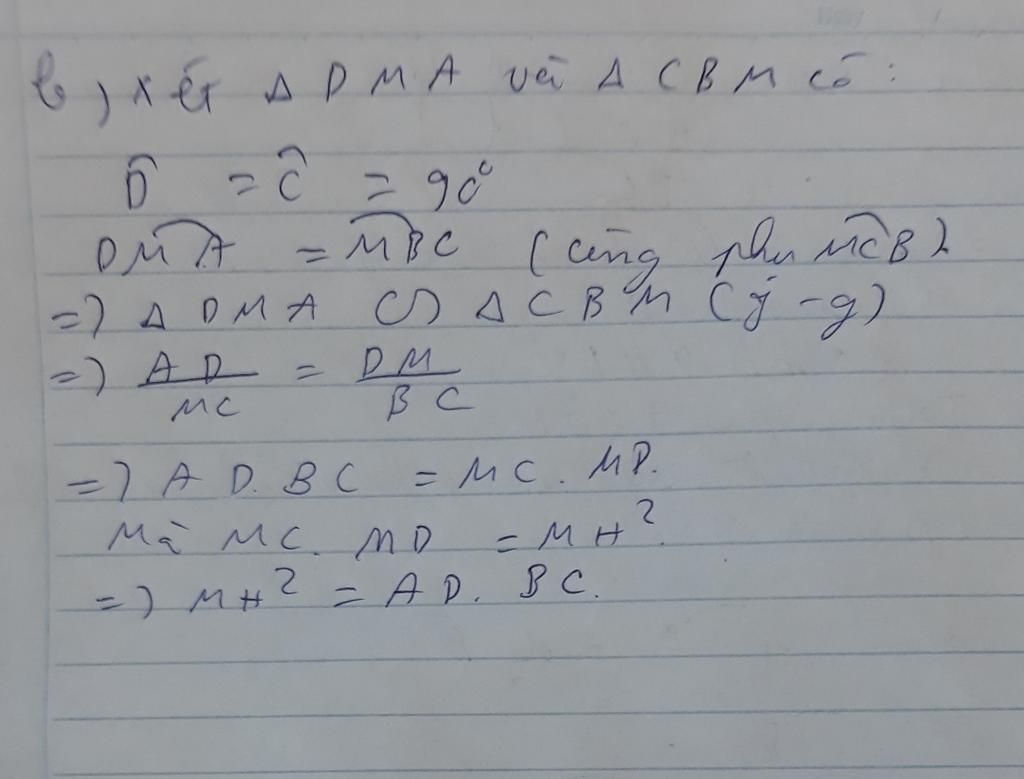 b) Xét Δ DMA và Δ CBM có:
D̂ = Ĉ = 90°
DM̂A = MB̂C (cùng phụ MĈB)
=> Δ DMA ∽ Δ CBM (g-g)
=> AD/MC = DM/BC
=> AD.BC = MC.MD.
Mà MC.MD = MH².
=> MH² = AD.BC.